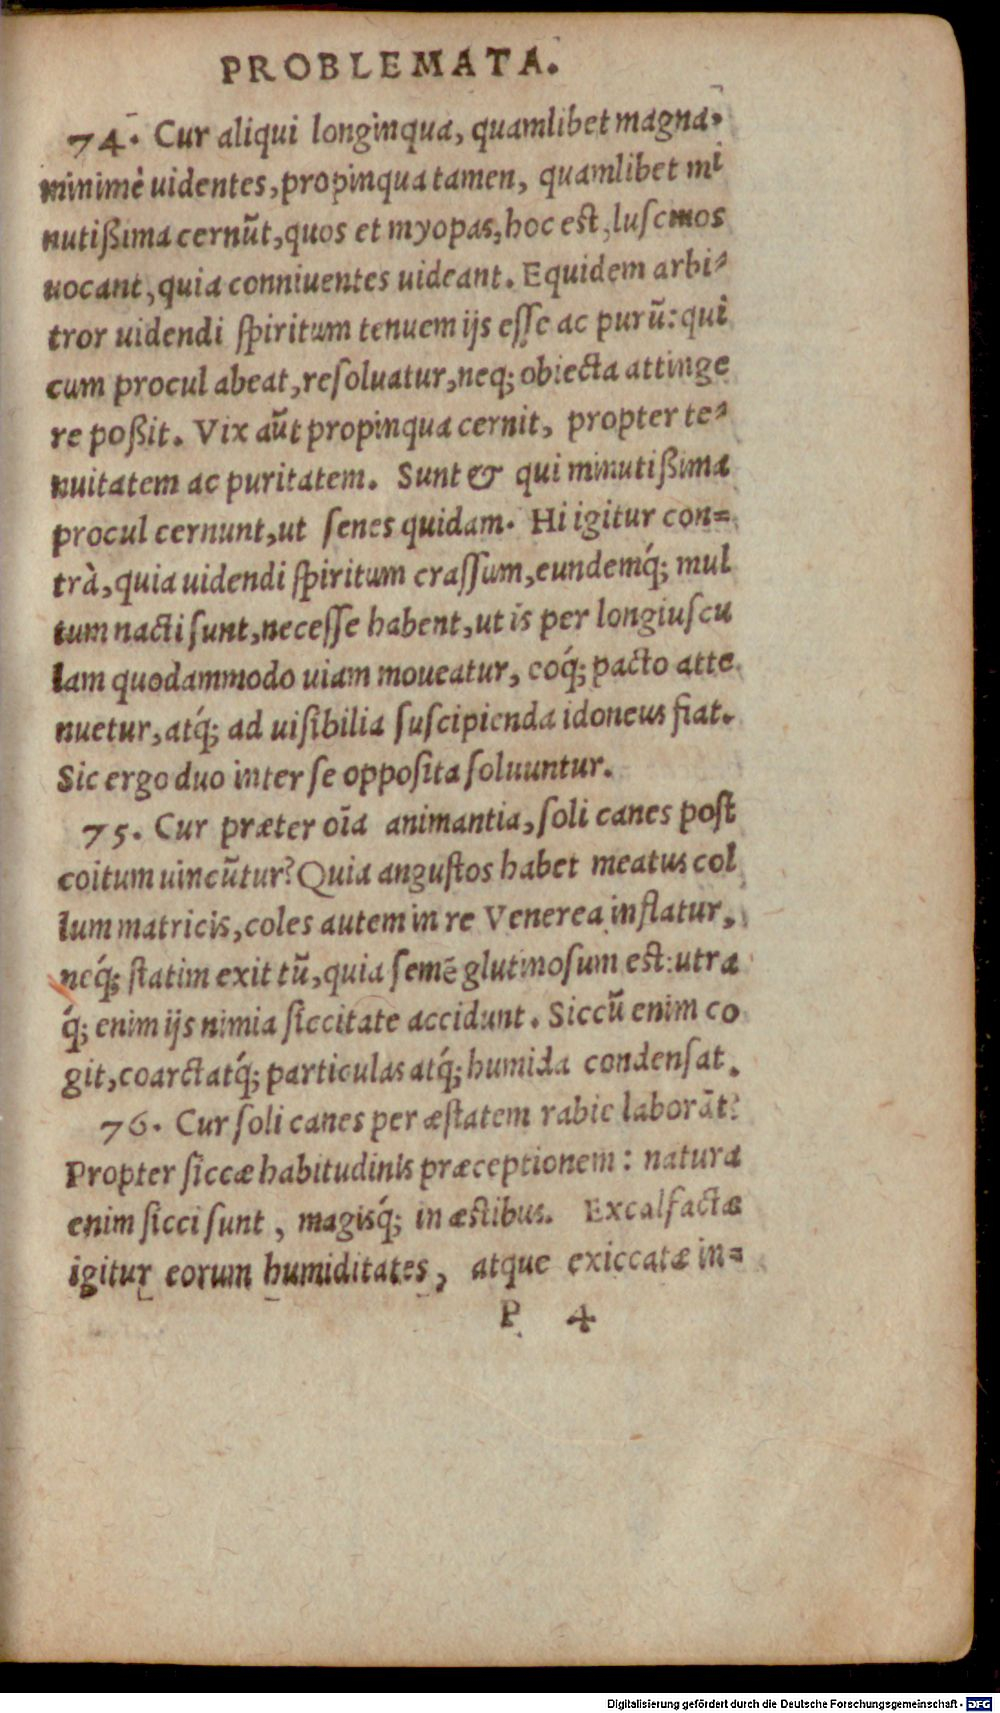 PROBLEMATA.
74. Cur aliqui longinqua, quamlibet magna,
minimè uidentes, propinqua tamen, quamlibet mi
nutißima cernūt, quos et myopas, hoc est, luscinos
uocant, quia conniuentes uideant. Equidem arbi-
tror uidendi spiritum tenuem ijs esse ac purū: qui
cum procul abeat, resoluatur, neq; obiecta attinge
re poßit. Vix aūt propinqua cernit, propter te-
nuitatem ac puritatem. Sunt & qui minutißima
procul cernunt, ut senes quidam. Hi igitur con=
trà, quia uidendi spiritum crassum, eundemq́; mul
tum nacti sunt, necesse habent, ut is per longiuscu
lam quodammodo uiam moueatur, eoq́; pacto atte
nuetur, atq́; ad uisibilia suscipienda idoneus fiat.
Sic ergo duo inter se opposita soluuntur.
75. Cur præter oīa animantia, soli canes post
coitum uincūtur? Quia angustos habet meatus col
lum matricis, coles autem in re Venerea inflatur,
neq́; statim exit tū, quia semē glutinosum est: utra
q́; enim ijs nimia siccitate accidunt. Siccū enim co
git, coarctatq́; particulas atq́; humida condensat.
76. Cur soli canes per æstatem rabie laborāt?
Propter siccæ habitudinis præceptionem: natura
enim sicci sunt, magisq́; in æstibus. Excalfactæ
igitur eorum humiditates, atque exiccatæ in=
P 4
Digitalisierung gefördert durch die Deutsche Forschungsgemeinschaft - DFG